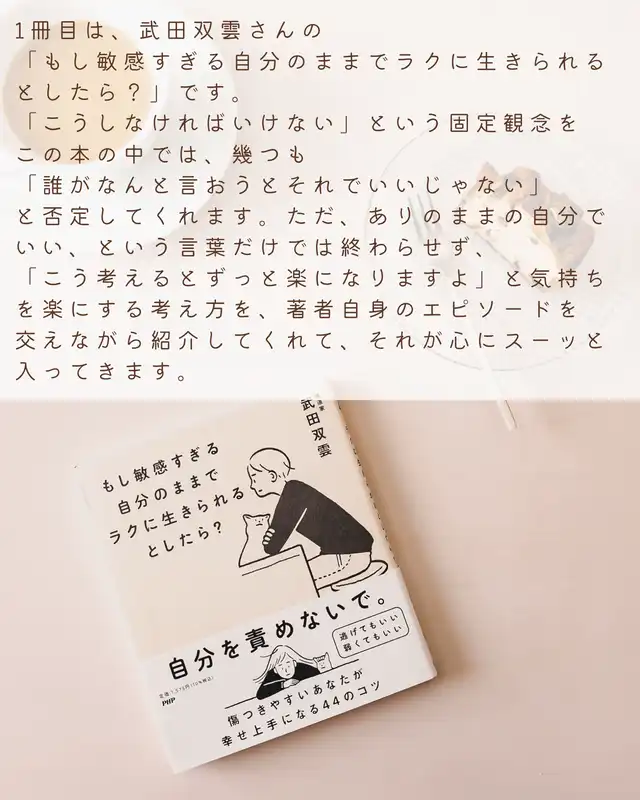 1冊目は、武田双雲さんの
「もし敏感すぎる自分のままでラクに生きられる
としたら？」です。
「こうしなければいけない」という固定観念を
この本の中では、幾つも
「誰がなんと言おうとそれでいいじゃない」
と否定してくれます。ただ、ありのままの自分で
いい、という言葉だけでは終わらせず、
「こう考えるとずっと楽になりますよ」と気持ち
を楽にする考え方を、著者自身のエピソードを
交えながら紹介してくれて、それが心にスーッと
入ってきます。
武田双雲
もし敏感すぎる
自分のままで
ラクに生きられる
としたら？
自分を責めないで。
逃げてもいい
弱くてもいい
定価1,375円(10%税込)
PHP
傷つきやすいあなたが
幸せ上手になる44のコツ